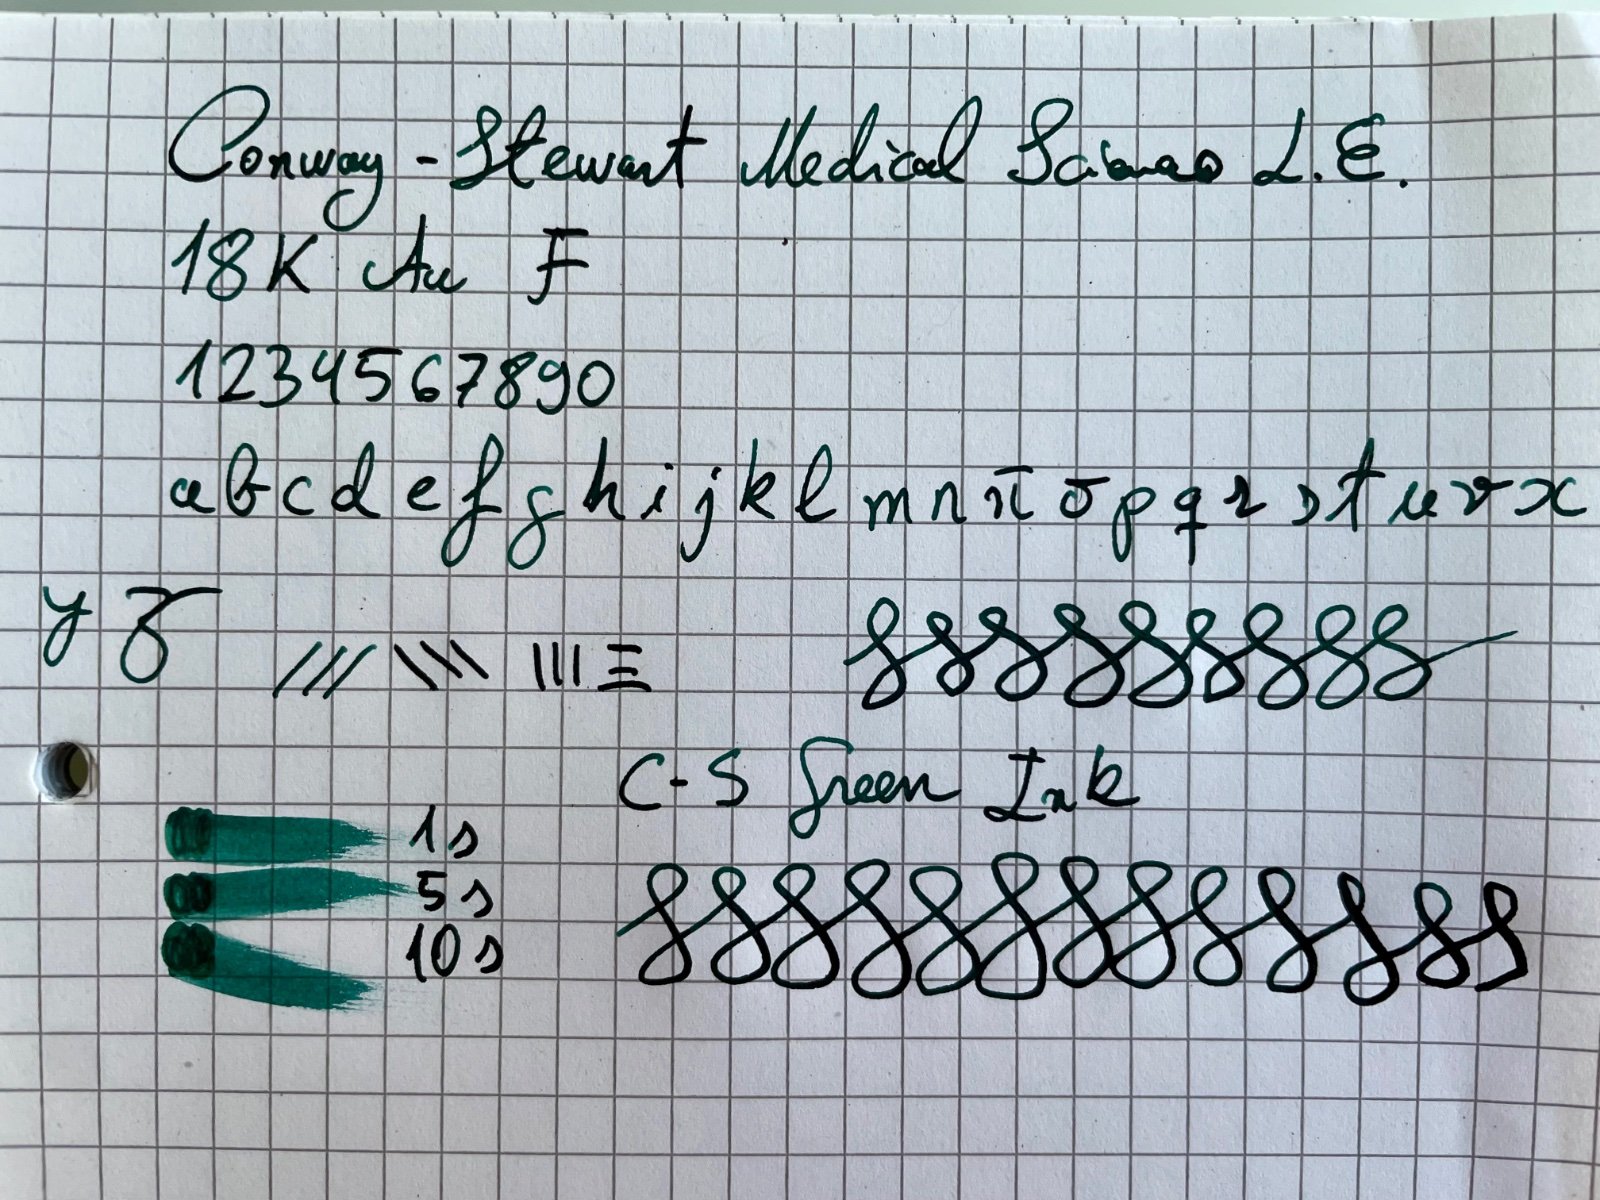 Conway-Stewart Medical Sciences L.E.
18K Au F
1234567890
a b c d e f g h i j k l m n ñ o p q r s t u v x
y z
C-S Green Ink
1s
5s
10s